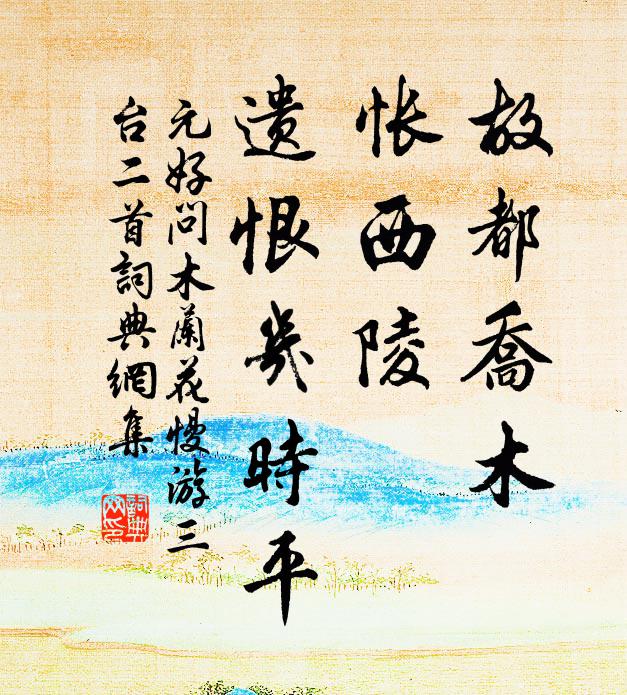 故都喬木
怅西陵
遗恨幾時平
元好问木蘭花慢游三
台二首詞典網集
詞典文印